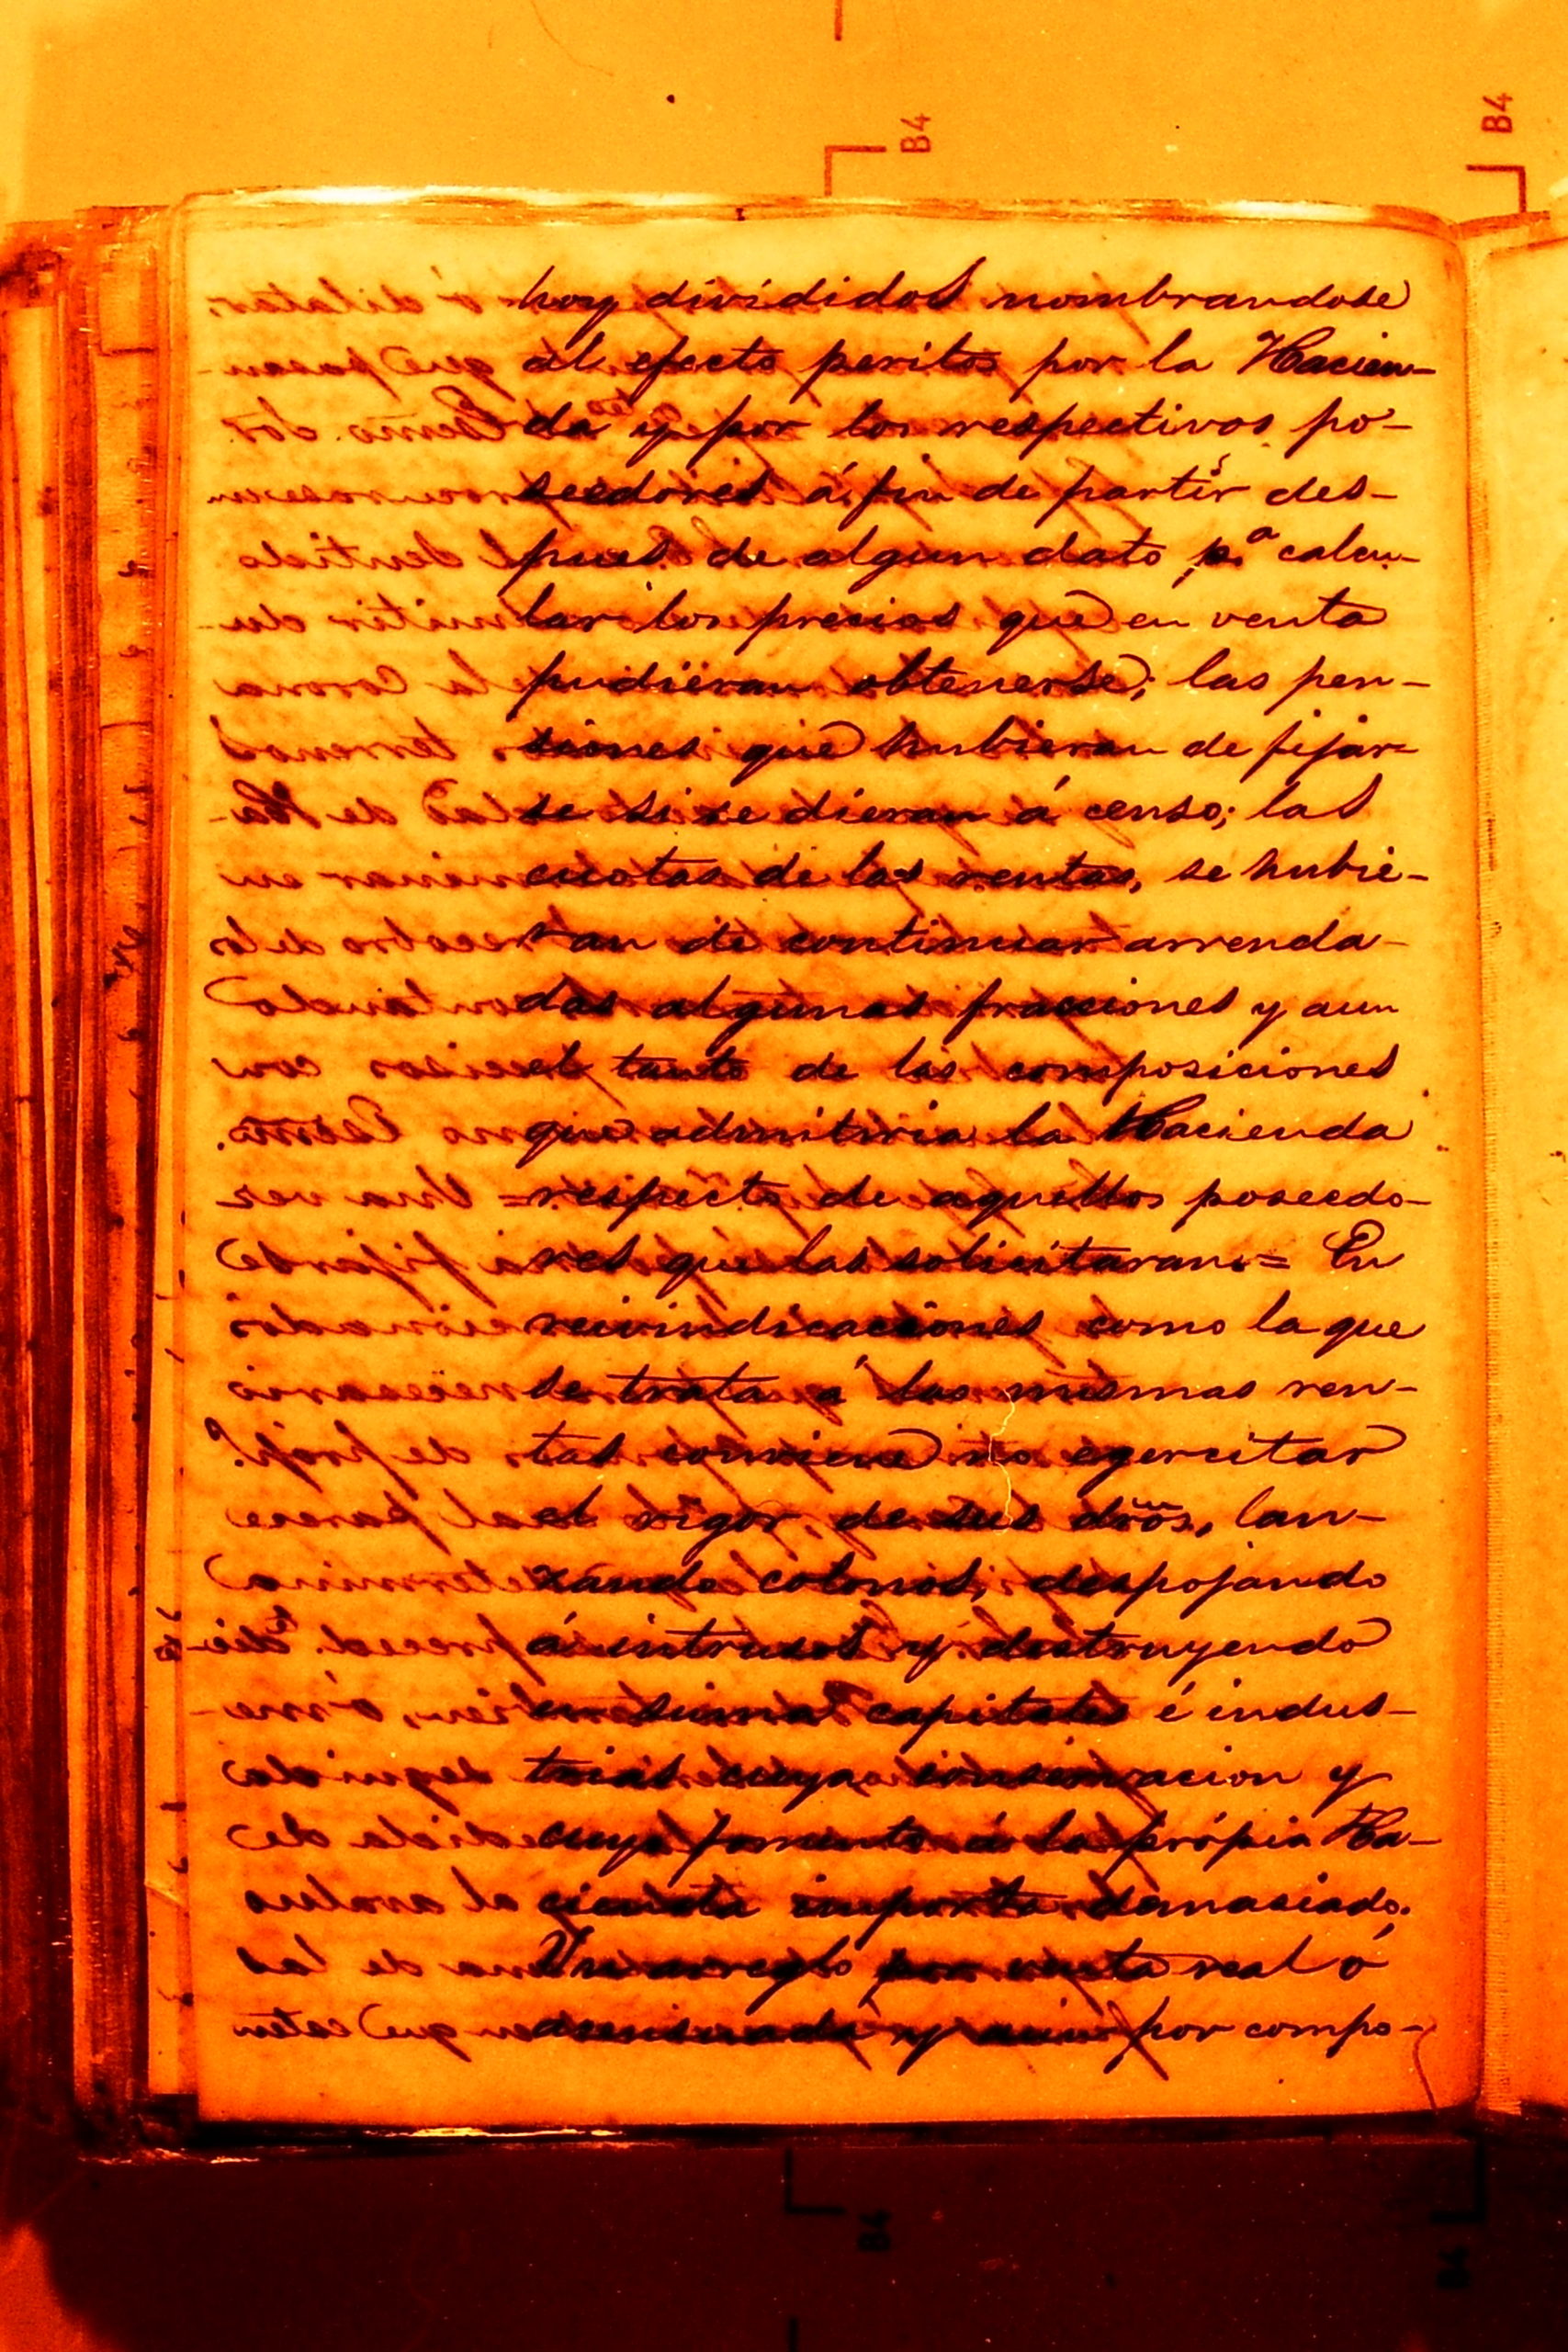 B4
B4
hoy divididos nombrandose
al efecto peritos por la Hacien-
da y por los respectivos po-
seedores á fin de partir des-
pues de algun dato p.ª calcu-
lar los precios que en venta
pudieran obtenerse; las pen-
siones que hubieran de fijar-
se si se dieran á censo; las
cuotas de las rentas, se hubie-
ran de continuar arrenda-
das algunas fracciones y aun
el tanto de las composiciones
que admitiria la Hacienda
respecto de aquellos poseedo-
res que las solicitaran.= En
reivindicaciones como la que
se trata á las mismas ren-
tas conviene no egercitar
el rigor, de sus dros, lan-
zando colonos, despojando
á intrusos y destruyendo
en suma capitales é indus-
trias cuya conservacion y
cuyo fomento á la própia Ha-
cienda importa demasiado.
Un arreglo por venta real ó
y aun por compo-
B4
B4